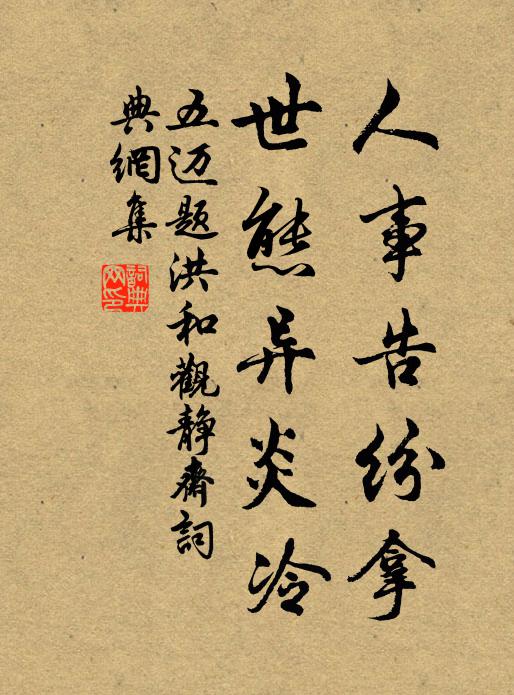 人事告纷拿
世態异炎冷
五迈題洪和觀靜齋詞
典網集
詞典
网印